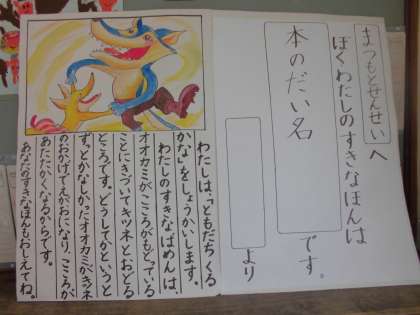 まつもとせんせいへ
ぼくわたしのすきなほんは
本のだい名
です。
より
わたしは、「ともだちくる
かな」をしょうかいします。
わたしのすきなばめんは、
オオカミがこころがもどっている
ことにきづいてキツネとおどる
ところです。どうしてかというと
ずっとかなしかったオオカミがキツネ
のおかげでえがおになり、こころが
あたたかくなるからです。
あなたのすきなほんもおしえてね。